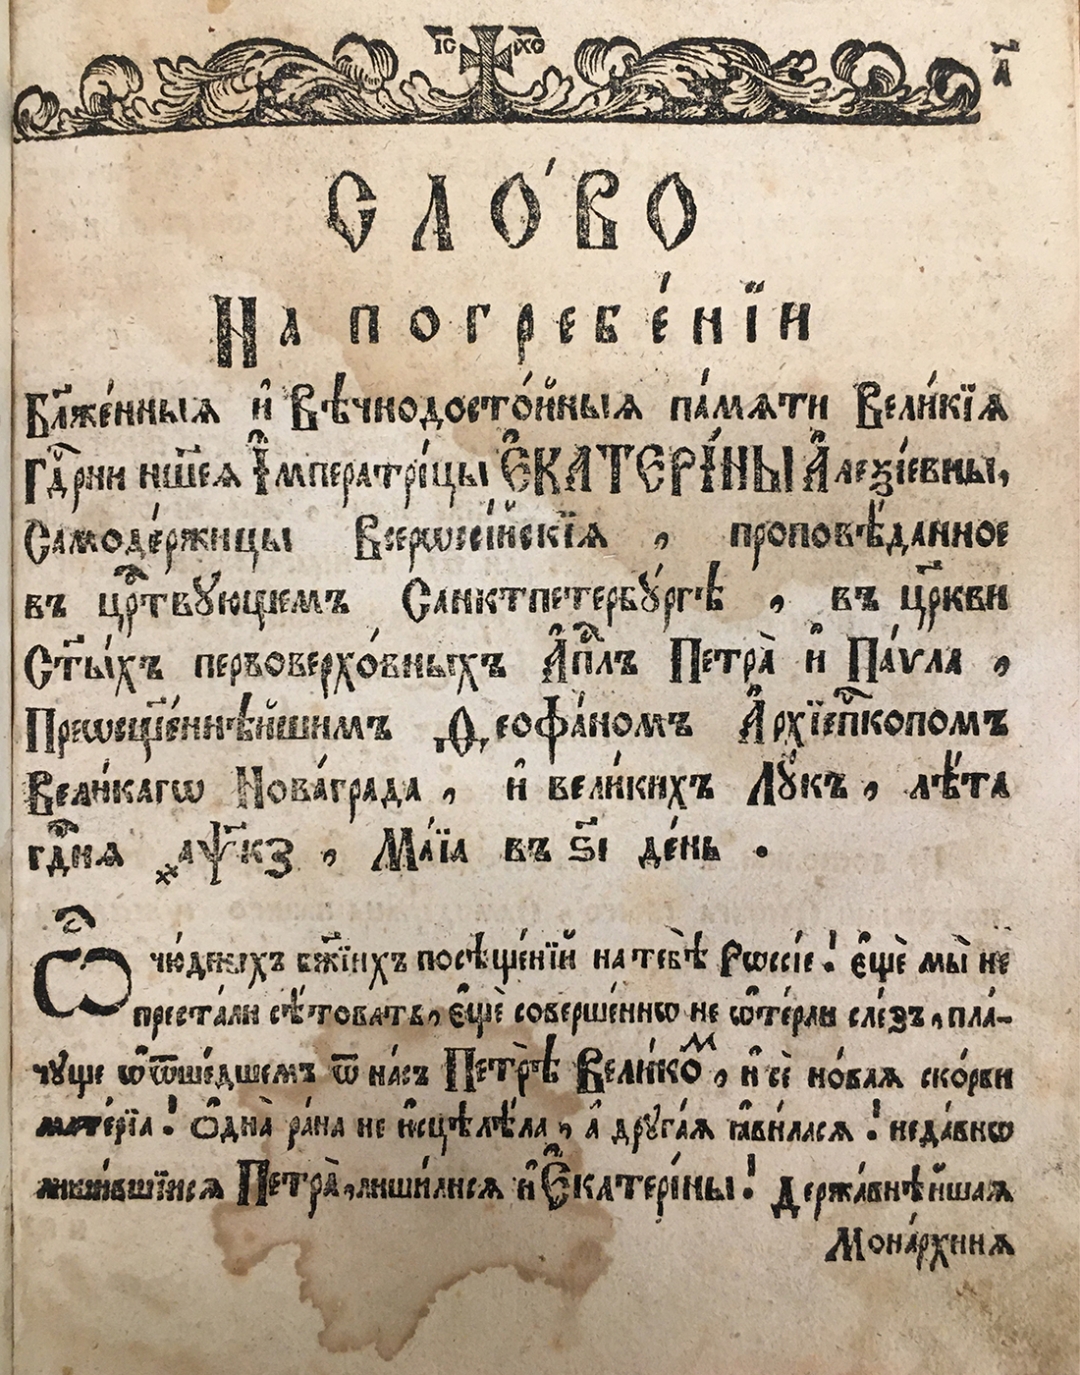 І҃С Х҃С
а҃
СЛО́ВО
На погребе́нїи
Бл҃же́нныѧ и҆ Вѣчнодосто́йныѧ па́мѧти Вели́кїѧ
Гдⷭ҇рни нш҃еѧ І҆мператрі́цы Е҆КАТЕРІ́НЫ А҆леѯі́евны,
Самоде́ржицы Всерѡссі́йскїѧ , проповѣ́данное
въ црⷭ҇твꙋющемъ Санктпетербꙋ́ргѣ , въ цр҃кви
Ст҃ы́хъ первоверхо́вныхъ А҆пⷭ҇лъ Петра̀ и҆ Па́ѵла ,
Преѡсщ҃е́ннѣйшимъ Ѳеофа́номъ А҆рхїепⷭ҇копомъ
Вели́кагѡ Нова́града , и҆ вели́кихъ Лꙋ́къ , лѣ́та
гдⷭ҇нѧ ҂аѱ҃кз , Ма́їа въ ѕ҃і де́нь .
Ѽ чю́дныхъ бж҃їихъ посѣще́нїй на тебѣ̀ Рѡссі́е! є҆щѐ мы̀ не
преста́ли сѣ́товать, є҆щѐ соверше́ннѡ не ѡ҆те́рли сле́зъ, пла́-
чꙋще ѡ҆ ѿше́дшемъ ѿ на́съ Петрѣ̀ Вели́коⷨ , и҆ сѐ но́ваѧ ско́рби
мате́рїа! Ѻ҆дна̀ ра́на не и҆сцѣлѣ́ла, а҆ дрꙋга́ѧ ꙗ҆ви́ласѧ! неда́внѡ
лиши́вшїисѧ Петра̀, лиши́лисѧ и҆ Е҆катері́ны! Держа́внѣйшаѧ
Мона́рхинѧ